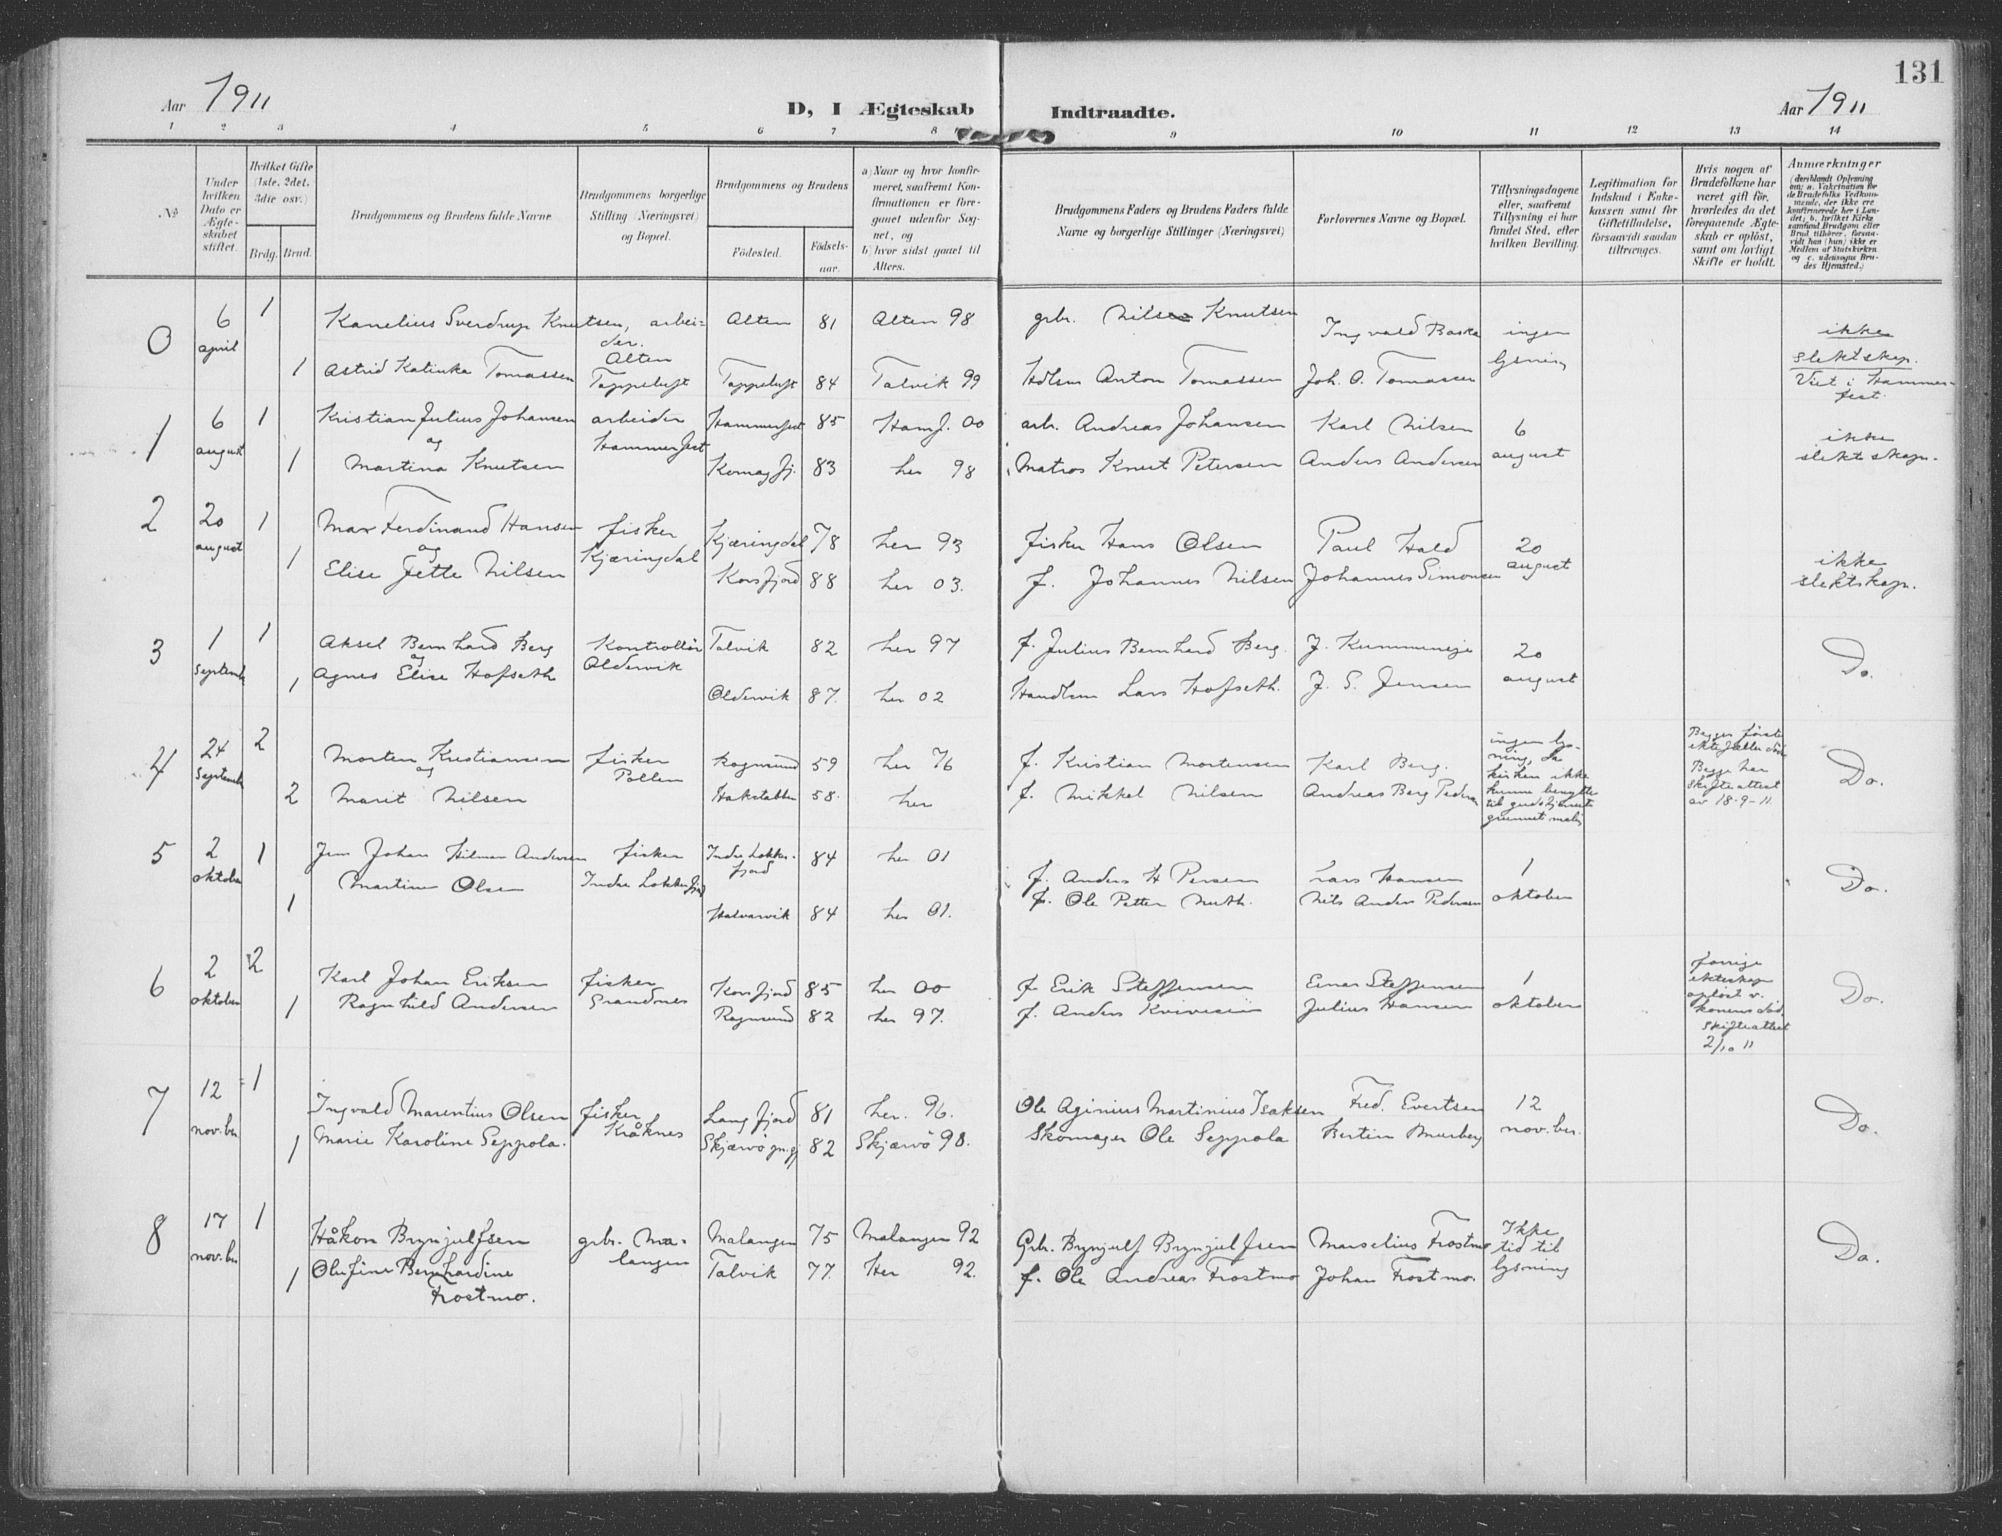 131
Aar 1911
D, I Ægteskab Indtraadte.
Aar 1911
1 2 3 4 5 6 7 8 9 10 11 12 13 14
№
Under hvilken Dato er Ægteskabet stiftet.
Hvilket Gifte (1ste, 2det, 3die osv.)
Brdg. Brud.
Brudgommens og Brudens fulde Navne.
Brudgommens borgerlige Stilling (Næringsvei) og Bopæl.
Brudgommens og Brudens
Födested. Födselsaar.
a) Naar og hvor konfirmeret, saafremt Konfirmationen er foregaaet udenfor Sognet, og
b) hvor sidst gaaet til Alters.
Brudgommens Faders og Brudens Faders fulde Navne og borgerlige Stillinger (Næringsvei)
Forlovernes Navne og Bopæl.
Tillysningsdagene eller, saafremt Tillysning ei har fundet Sted, efter hvilken Bevilling.
Legitimation for Indskud i Enkekassen samt for Giftetilladelse, forsaavidt saadan tiltrænges.
Hvis nogen af Brudefolkene har været gift før, hvorledes da det foregaaende Ægteskab er oplöst, samt om lovligt Skifte er holdt.
Anmærkninger
(deriblandt Oplysning om: a. Vakcination for de Brudefolks Vedkommende, der ikke ere konfirmerede her i Landet; b. hvilket Kirkesamfund Brudgom eller Brud tilhører, forsaavidt han (hun) ikke er Medlem af Statskirken og c. udensogns Brudes Hjemsted.)
0 6 april 1 Kanelius Sverdrup Knutsen, arbeider. Alten Alten 81 Alten 98 grbr. Nils Knutsen Ingvald Baska ingen lysning ikke slektskap.
1 Astrid Katinka Tomassen Toppeluft Toppeluft 84 Talvik 99 Hdlsm Anton Tomassen Joh. O. Tomassen Viet i Hammerfest.
1 6 august 1 Kristian Julius Johansen arbeider Hammerfest Hammerfest 85 Hamf. 00 arb. Andreas Johansen Karl Nilsen 6 august ikke slektskap.
og
1 Martina Knutsen Komagfj. 83 her 98 Matros Knut Petersen Anders Andersen
2 20 august 1 Max Ferdinand Hansen fisker Kjæringdal Kjæringdal 78 her 93 fisker Hans Olsen Paul Hald 20 august ikke slektskap.
og
1 Elise Jette Nilsen Korsfjord 88 her 03. f. Johannes Nilsen Johannes Simonsen
3 1 Septemb 1 Aksel Bernhard Berg Kontrollör Oldervik Talvik 82 her 97 f. Julius Bernhard Berg. J. Kummeneje 20 august Do.
og
1 Agnes Elise Hofseth Oldervik 87. her 02 Handlsm Lars Hofseth. J. S. Jensen
4 24 Septemb 2 Morten Kristiansen fisker Pollen Rognsund 59 her 76 f. Kristian Mortensen Karl Berg. ingen lysning, da kirken ikke kunne benyttes til gudstjeneste grunnet maling Begges første ektefæller död Begge har Skifteattest av 18-9-11. Do.
og
2 Marit Nilsen Hakstabben 58. her f. Mikkel Nilsen Andreas Berg Pedersen
5 2 oktober 1 Jens Johan Hilmar Andersen fisker Indre Lokkerfjord Indre Lokkerfjord 84 her 01 f. Anders H Persen Lars Hansen 1 oktober Do.
1 Martine Olsen Halvarvik 84 her 01. f. Ole Petter Muth. Nils Anders Pedersen
6 2 oktober 2 Karl Johan Eriksen fisker Grandnes Korsfjord 85 her 00 f. Erik Steffensen Einar Steffensen 1 oktober forrige ekteskap opløst v. konens död. Skifteattest 2/10 11 Do.
1 Ragnhild Andersen Rognsund 82 her 97. f. Anders Julius Hansen
7 12 nov.ber 1 Ingvald Marentius Olsen fisker Kråknes Langfjord 81 her. 96. Ole Aginius Martinius Isaksen Fred. Evertsen 12 nov.ber. Do.
1 Marie Karoline Seppola. Skjærvö 82 Skjærvö 98. Skomager Ole Seppola Bertin Murberg
8 17 nov.ber 1 Håkon Brynjulfsen grbr. Malangen Malangen 75 Malangen 92 Grbr. Brynjulf Brynjulfsen Marselius Frostmo Ikke tid til lysning Do.
1 Olufine Bernhardine Frostmo. Talvik 77. Her 92. f. Ole Andreas Frostmo Johan Frostmo.